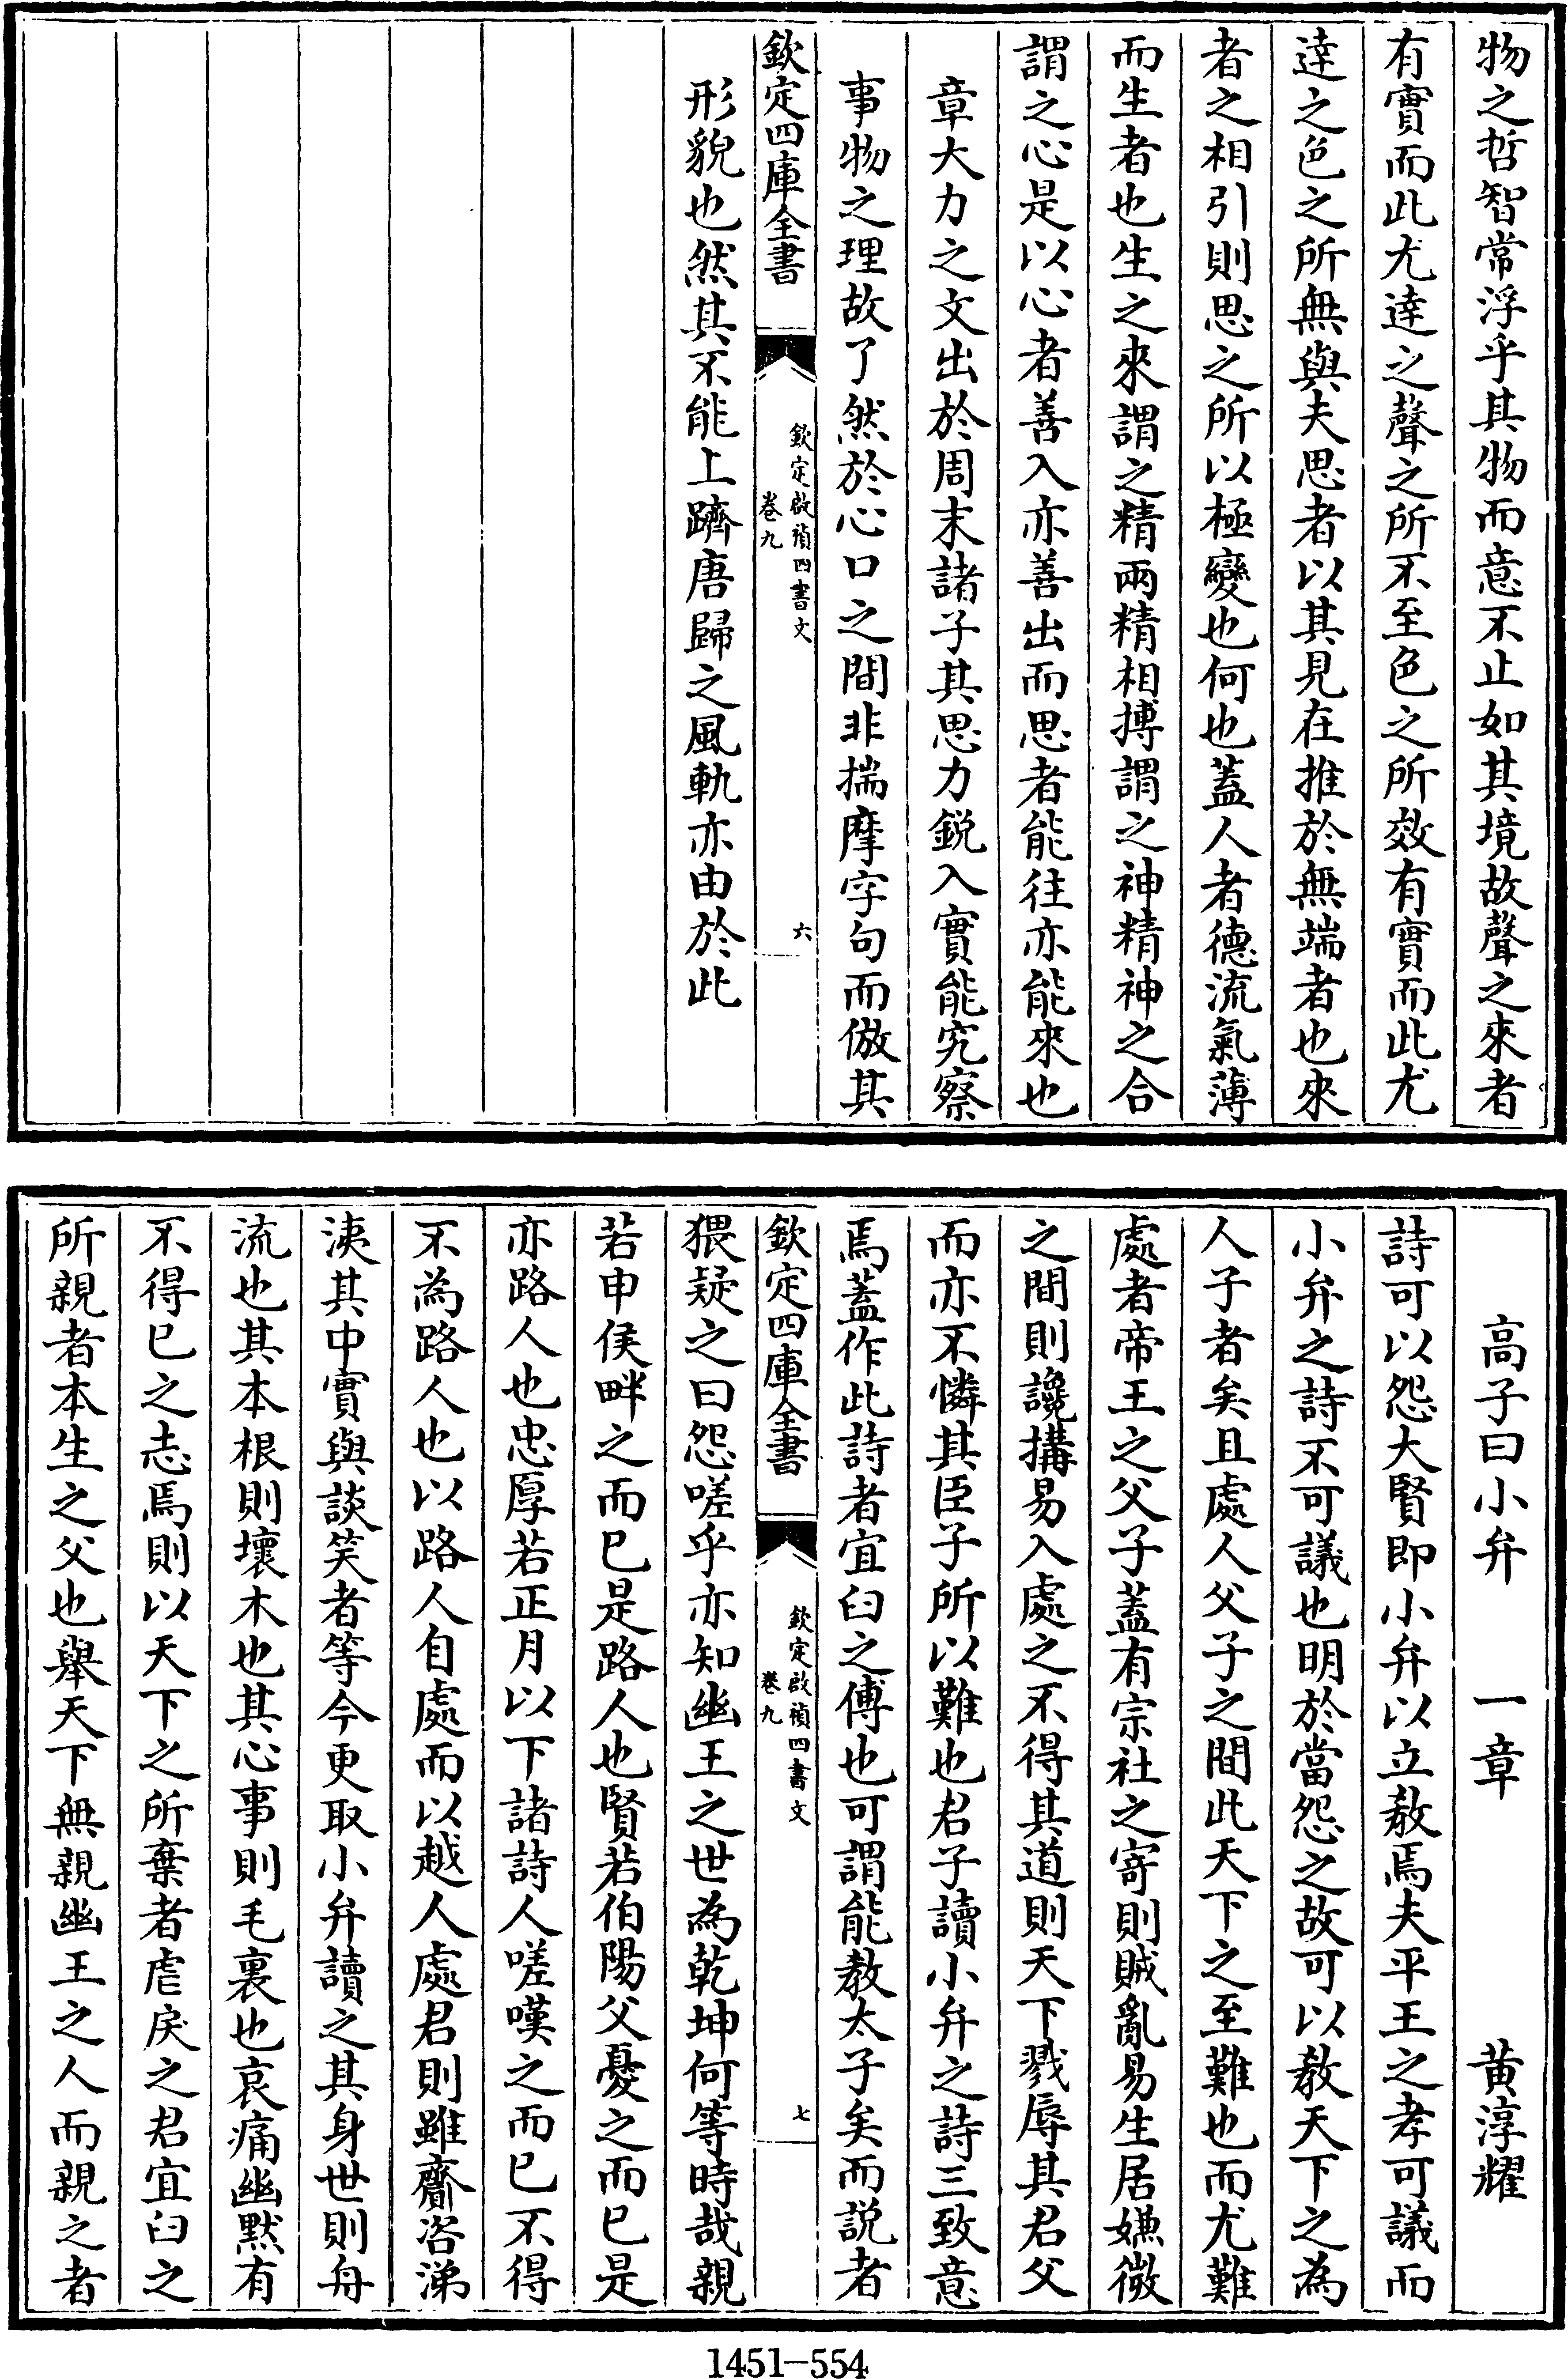 物之哲智常浮乎其物而意不止如其境故聲之來者
有實而此尤逹之聲之所不至色之所效有實而此尤
逹之色之所無與夫思者以其見在推於無端者也來
者之相引則思之所以極變也何也蓋人者德流氣薄
而生者也生之來謂之精兩精相搏謂之神精神之合
謂之心是以心者善入亦善出而思者能往亦能來也
章大力之文出於周末諸子其思力鋭入實能究察
事物之理故了然於心口之間非揣摩字句而倣其
欽定四庫全書
欽定啟禎四書文
卷九
六
形貌也然其不能上躋唐歸之風軌亦由於此
高子曰小弁 一章 黄淳耀
詩可以怨大賢即小弁以立教焉夫平王之孝可議而
小弁之詩不可議也明於當怨之故可以教天下之為
人子者矣且處人父子之間此天下之至難也而尤難
處者帝王之父子蓋有宗社之寄則賊亂易生居嫌微
之間則讒搆易入處之不得其道則天下戮辱其君父
而亦不憐其臣子所以難也君子讀小弁之詩三致意
焉蓋作此詩者宜臼之傅也可謂能教太子矣而説者
欽定四庫全書
欽定啟禎四書文
卷九
七
猥疑之曰怨嗟乎亦知幽王之世為乾坤何等時哉親
若申侯畔之而已是路人也賢若伯陽父憂之而已是
亦路人也忠厚若正月以下諸詩人嗟嘆之而已不得
不為路人也以路人自處而以越人處君則雖齎咨涕
洟其中實與談笑者等今更取小弁讀之其身世則舟
流也其本根則壞木也其心事則毛裏也哀痛幽黙有
不得已之志焉則以天下之所棄者虐戾之君宜臼之
所親者本生之父也舉天下無親幽王之人而親之者
1451-554